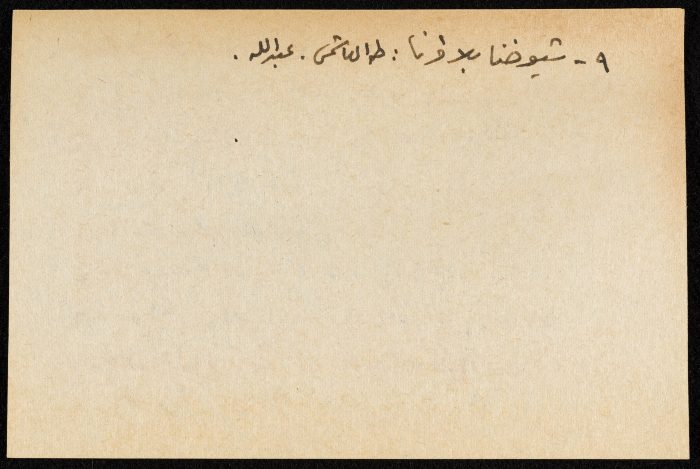 ٩ - شيوخنا بلاؤنا : طه الهاشمي . عبدالله .